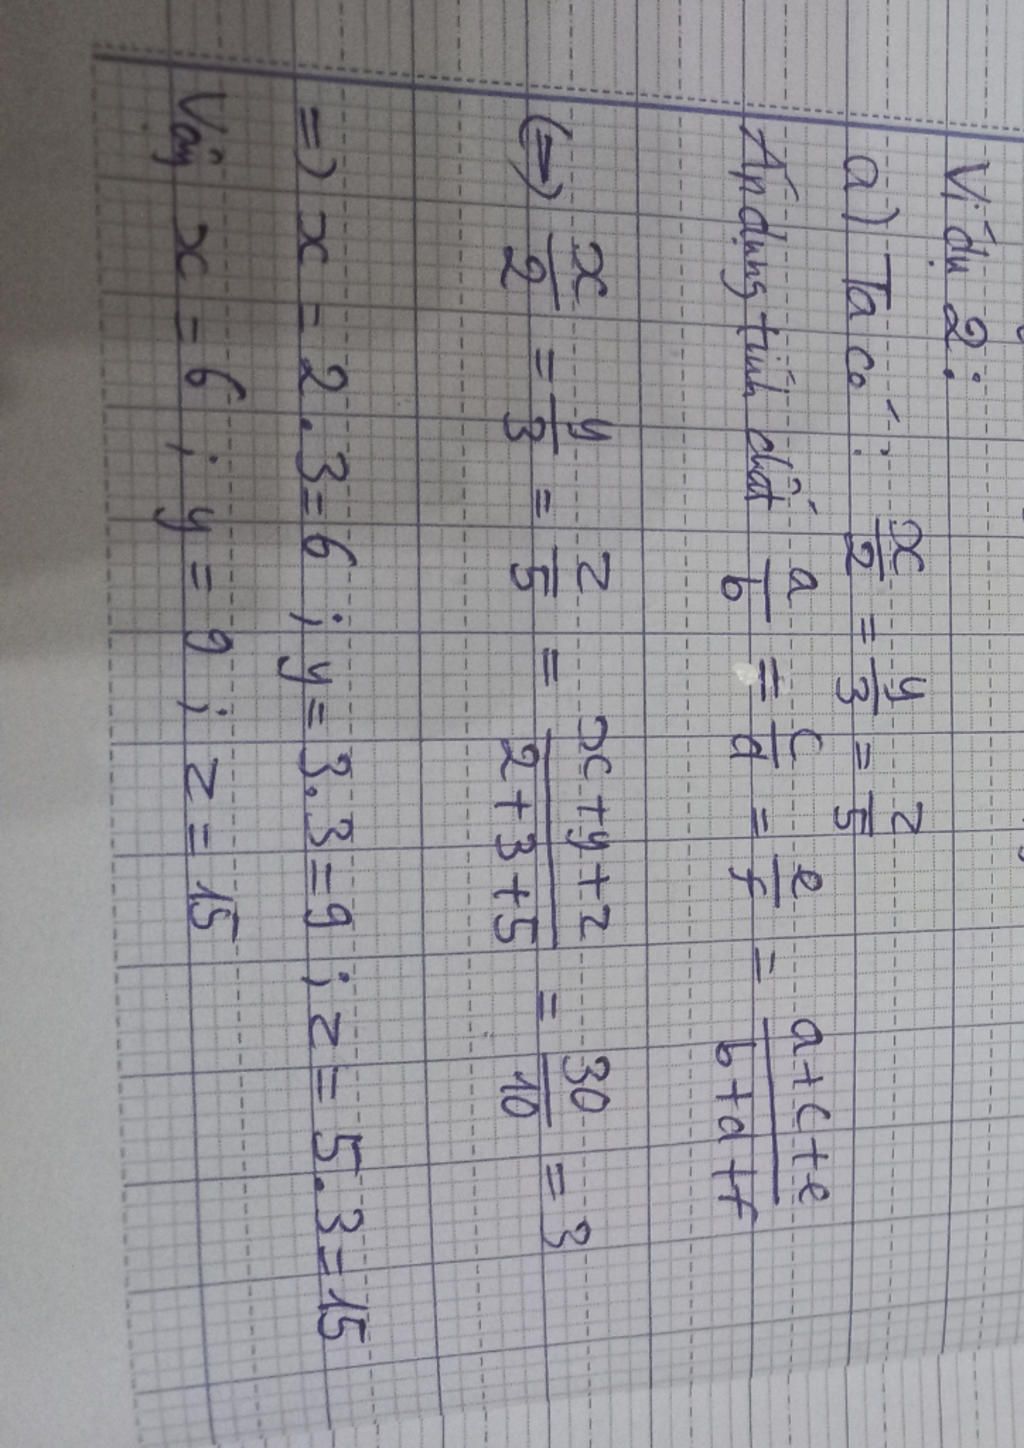 Ví dụ 2:
a) Ta có: x/2 = y/3 = z/5
Áp dụng tính chất a/b = c/d = e/f = (a+c+e)/(b+d+f)
(=) x/2 = y/3 = z/5 = (x+y+z)/(2+3+5) = 30/10 = 3
=) x = 2.3=6 ; y = 3.3=9 ; z = 5.3=15
Vậy x = 6 ; y = 9 ; z = 15